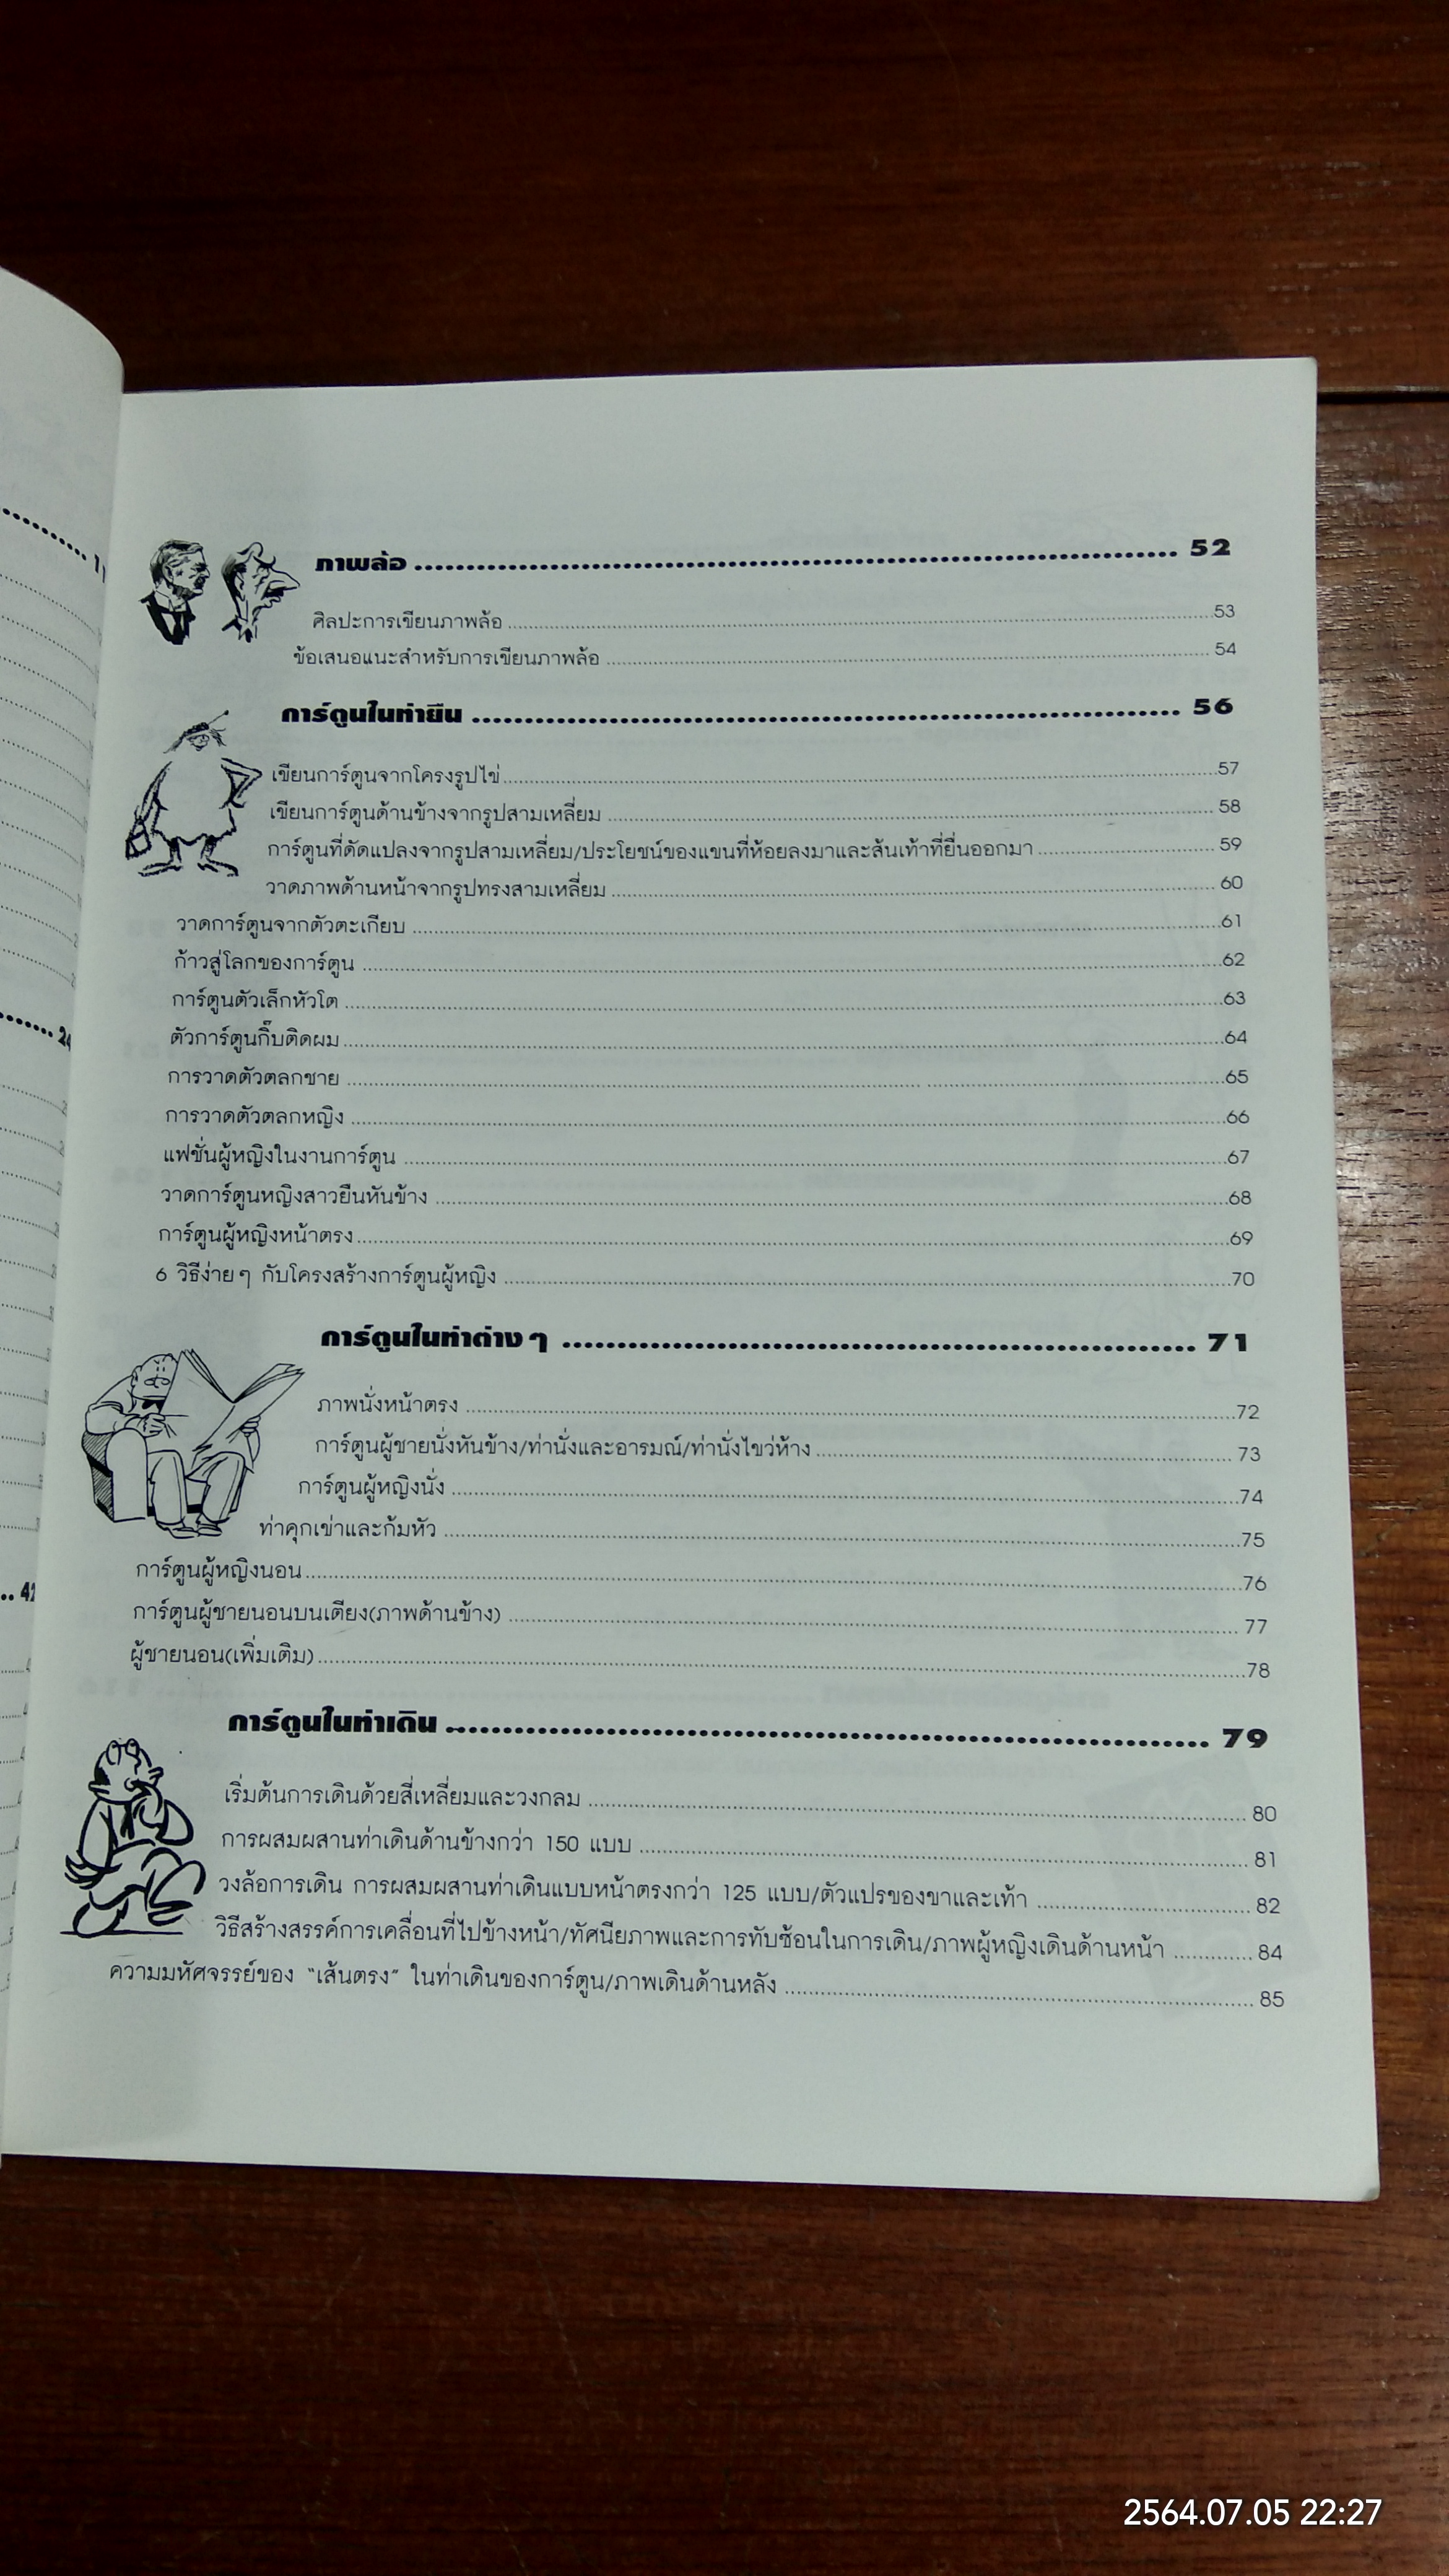 ภาพล้อ ........ 52
ศิลปะการเขียนภาพล้อ ........ 53
ข้อเสนอแนะสำหรับการเขียนภาพล้อ ........ 54
การ์ตูนในท่ายืน ........ 56
เขียนการ์ตูนจากโครงรูปไข่ ........ 57
เขียนการ์ตูนด้านข้างจากรูปสามเหลี่ยม ........ 58
การ์ตูนที่ดัดแปลงจากรูปสามเหลี่ยม/ประโยชน์ของแขนที่ห้อยลงมาและส้นเท้าที่ยื่นออกมา ........ 59
วาดภาพด้านหน้าจากรูปทรงสามเหลี่ยม ........ 60
วาดการ์ตูนจากตัวตะเกียบ ........ 61
ก้าวสู่โลกของการ์ตูน ........ 62
การ์ตูนตัวเล็กหัวโต ........ 63
ตัวการ์ตูนกิ๊บติดผม ........ 64
การวาดตัวตลกชาย ........ 65
การวาดตัวตลกหญิง ........ 66
แฟชั่นผู้หญิงในงานการ์ตูน ........ 67
วาดการ์ตูนหญิงสาวยืนหันข้าง ........ 68
การ์ตูนผู้หญิงหน้าตรง ........ 69
6 วิธีง่ายๆ กับโครงสร้างการ์ตูนผู้หญิง ........ 70
การ์ตูนในท่าต่างๆ ........ 71
ภาพนั่งหน้าตรง ........ 72
การ์ตูนผู้ชายนั่งหันข้าง/ท่านั่งและอารมณ์/ท่านั่งไขว่ห้าง ........ 73
การ์ตูนผู้หญิงนั่ง ........ 74
ท่าคุกเข่าและก้มหัว ........ 75
การ์ตูนผู้หญิงนอน ........ 76
การ์ตูนผู้ชายนอนบนเตียง(ภาพด้านข้าง) ........ 77
ผู้ชายนอน(เพิ่มเติม) ........ 78
การ์ตูนในท่าเดิน ........ 79
เริ่มต้นการเดินด้วยสี่เหลี่ยมและวงกลม ........ 80
การผสมผสานท่าเดินด้านข้างกว่า 150 แบบ ........ 81
วงล้อการเดิน การผสมผสานท่าเดินแบบหน้าตรงกว่า 125 แบบ/ตัวแปรของขาและเท้า ........ 82
วิธีสร้างสรรค์การเคลื่อนที่ไปข้างหน้า/ทัศนียภาพและการทับซ้อนในการเดิน/ภาพผู้หญิงเดินด้านหน้า ........ 84
ความมหัศจรรย์ของ "เส้นตรง" ในท่าเดินของการ์ตูน/ภาพเดินด้านหลัง ........ 85
2564.07.05 22:27